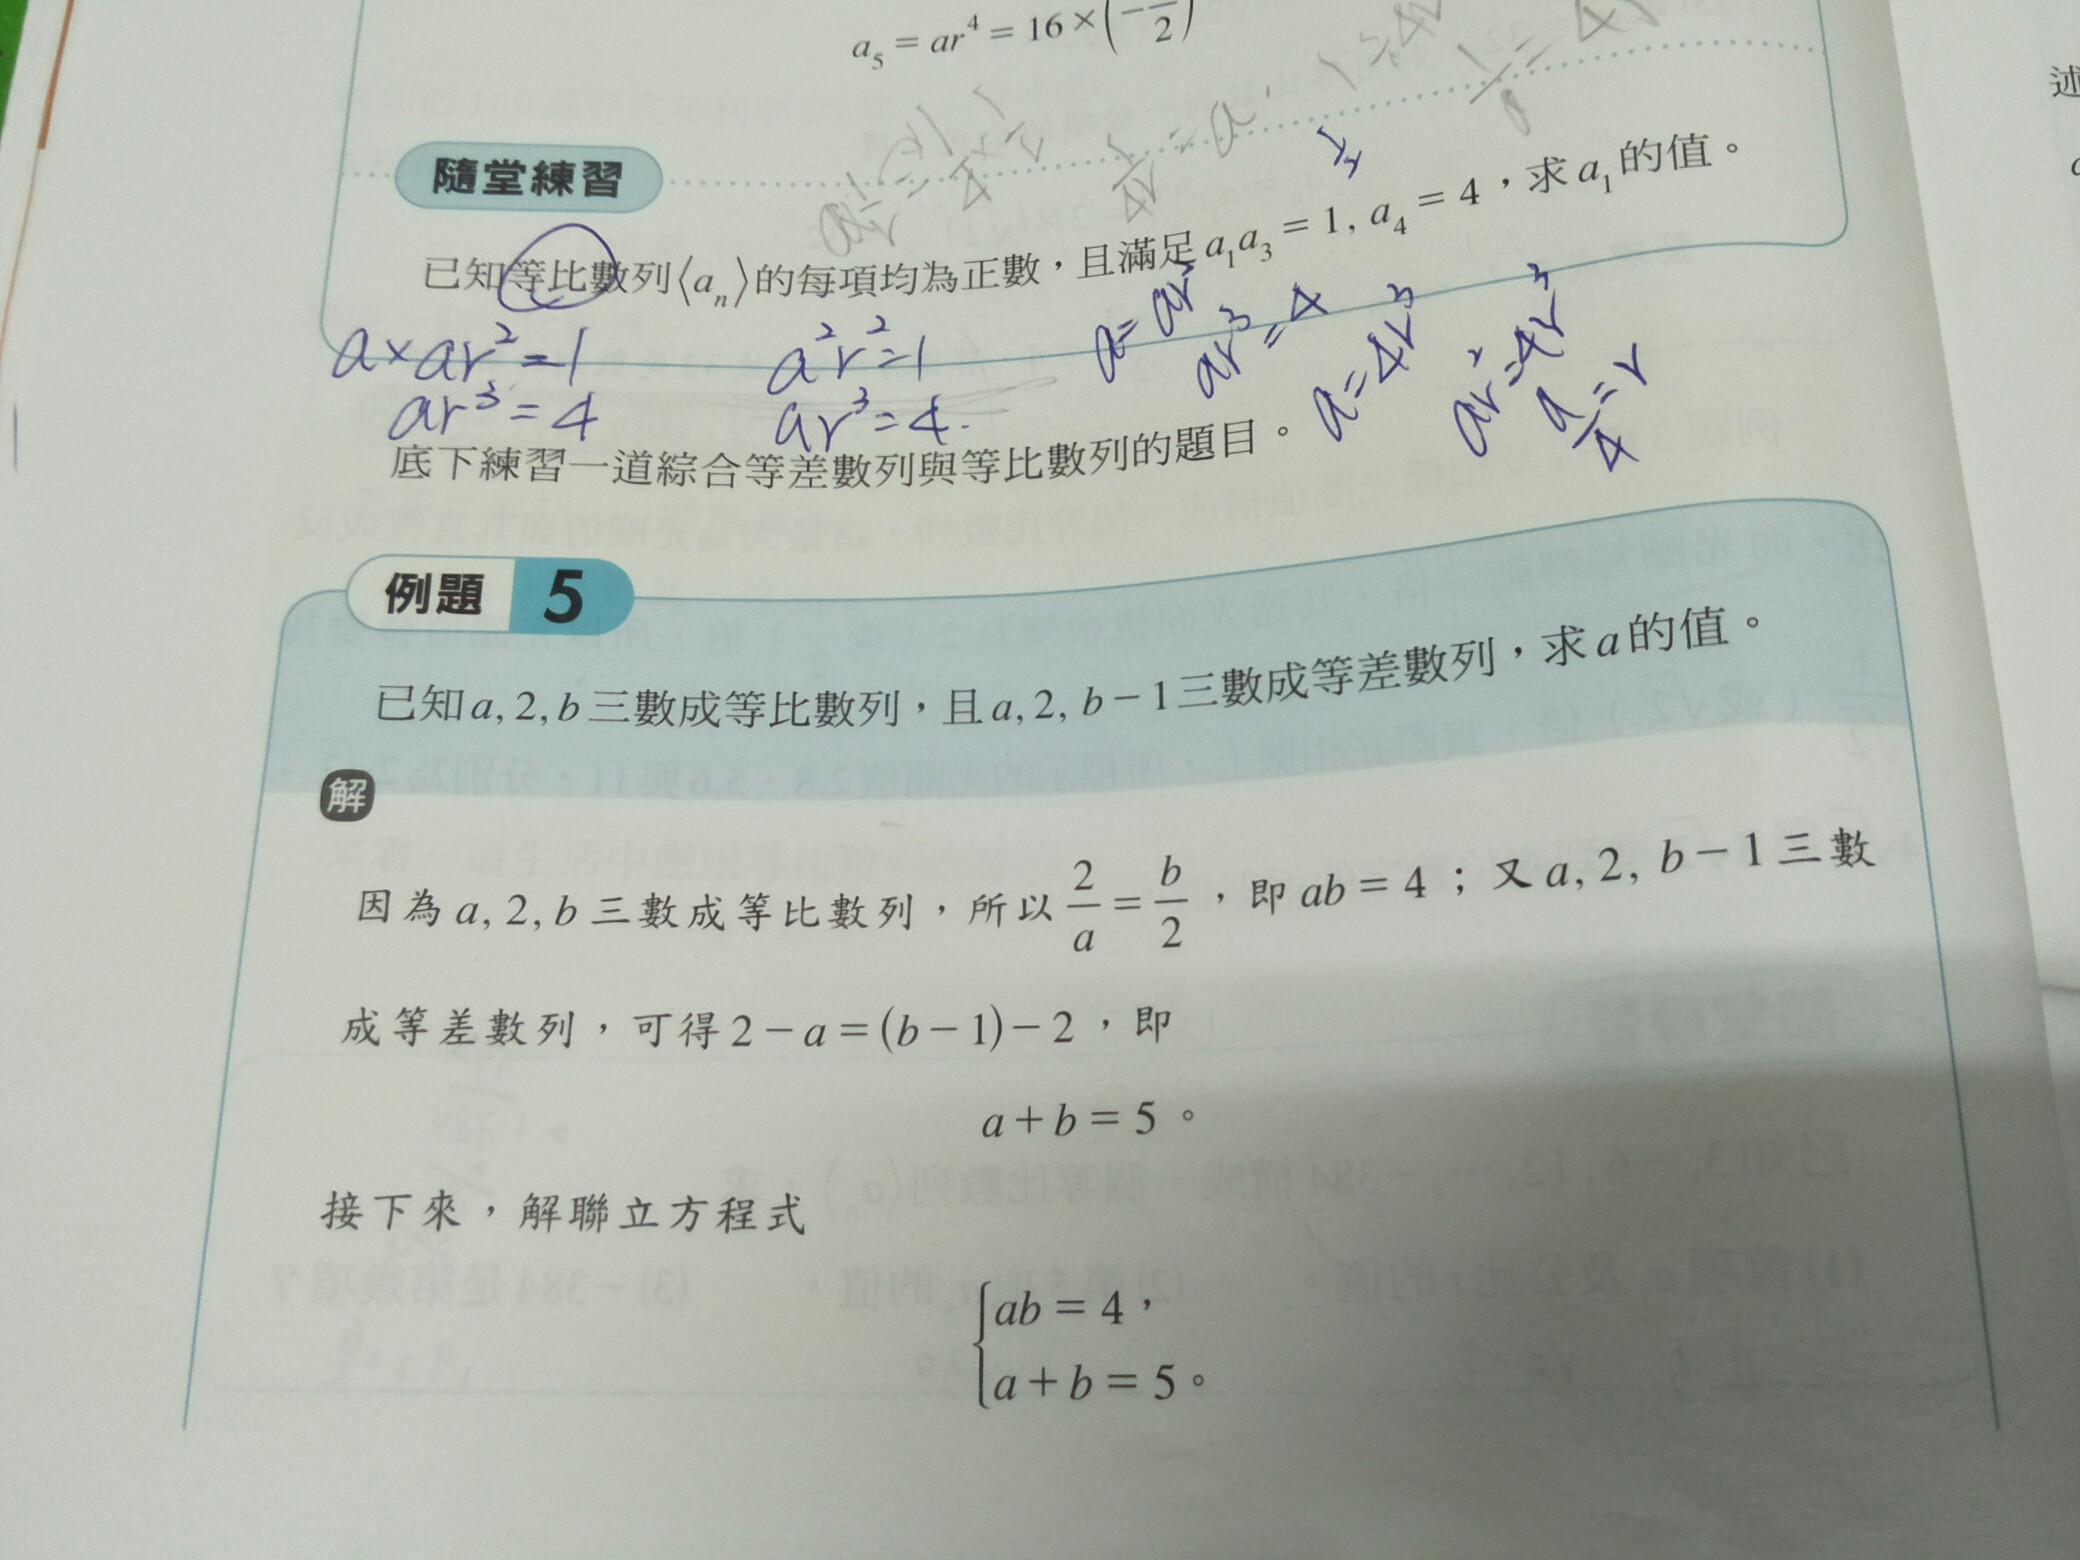 a₅ = ar⁴ = 16 × (−—2)
隨堂練習
已知等比數列⟨aₙ⟩的每項均為正數，且滿足a₁a₃ = 1, a₄ = 4，求a₁的值。
a×ar²=1
ar³=4
a²r²=1
ar³=4.
ar³=4
a=4r³
ar²=4r³
a/4=r
底下練習一道綜合等差數列與等比數列的題目。
例題 5
已知a, 2, b三數成等比數列，且a, 2, b−1三數成等差數列，求a的值。
解
因為a, 2, b三數成等比數列，所以2/a = b/2，即ab = 4；又a, 2, b−1三數
成等差數列，可得2−a=(b−1)−2，即
a+b=5。
接下來，解聯立方程式
ab = 4，
a+b=5。
述